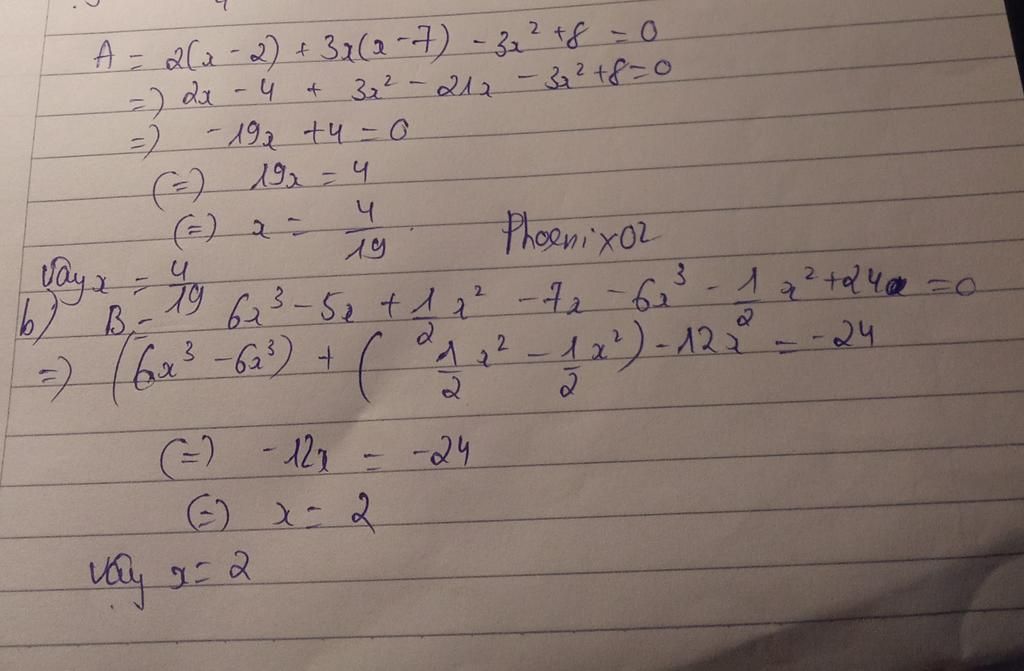 A = 2(x - 2) + 3x(x - 7) - 3x² + 8 = 0
=) 2x - 4 + 3x² - 21x - 3x² + 8 = 0
=) -19x + 4 = 0
(=) 19x = 4
(=) x = 4/19
Phoenix02
Vậy x = 4/19
b) B = 6x³ - 5x + 1/2 x² - 7x - 6x³ - 1/2 x² + 24 = 0
=) (6x³ - 6x³) + (1/2 x² - 1/2 x²) - 12x = -24
(=) -12x = -24
(=) x = 2
Vậy x = 2